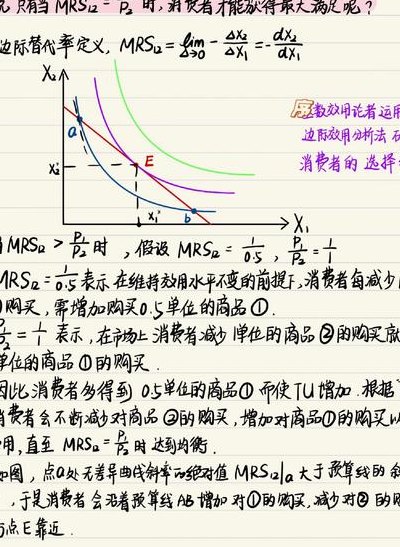 只有当 MRS₁₂ = P₁/P₂ 时，消费者才能获得最大满足呢？
边际替代率定义，MRS₁₂ = lim Δ→0 - ΔX₂/ΔX₁ = - dX₂/dX₁
X₂
a
E
X₂*
X₁*
b
X₁
序数效用论者运用
边际效用分析法
消费者的选择
当 MRS₁₂ > P₁/P₂ 时，假设 MRS₁₂ = 1/0.5，P₁/P₂ = 1/1
MRS₁₂ = 1/0.5 表示在维持效用水平不变的前提下，消费者每减少
购买，需增加购买0.5单位的商品①.
P₁/P₂ = 1/1 表示，在市场上消费者减少1单位的商品②的购买
单位的商品①的购买.
因此消费者多得到0.5单位的商品①而使TU增加.根据
消费者会不断减少对商品②的购买，增加对商品①的购买
用，直至 MRS₁₂ = P₁/P₂ 时达到均衡.
如图，点a处无差异曲线斜率的绝对值 MRS₁₂|a 大于预算线的斜
，于是消费者会沿着预算线AB增加对①的购买，减少对②的购
点E靠近.